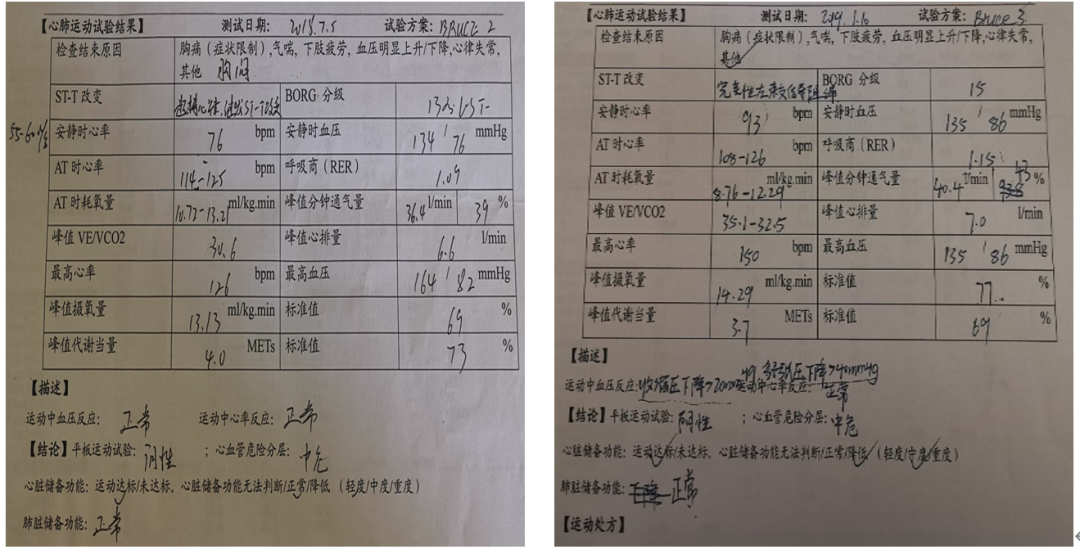 【心肺运动试验结果】 测试日期: 2018.7.5 试验方案: BRUCE 2
检查结束原因 胸痛（症状限制）,气喘,下肢疲劳,血压明显上升/下降,心律失常,
其他 胸闷
ST-T 改变 BORG 分级 13
安静时心率 76 bpm 安静时血压 134 / 76 mmHg
AT 时心率 114-125 bpm 呼吸商（RER） 1.09
AT 时耗氧量 10.72-13.21 ml/kg.min 峰值分钟通气量 36.4 l/min 39 %
峰值 VE/VCO2 30.6 峰值心排量 6.6 l/min
最高心率 126 bpm 最高血压 164 / 82 mmHg
峰值摄氧量 13.13 ml/kg.min 标准值 69 %
峰值代谢当量 4.0 METs 标准值 73 %
【描述】
运动中血压反应: 正常 运动中心率反应: 正常
【结论】平板运动试验: 阴性 ；心血管危险分层: 中危
心脏储备功能: 运动达标/未达标, 心脏储备功能无法判断/正常/降低（轻度/中度/重度）
肺脏储备功能: 正常
【心肺运动试验结果】 测试日期: 2019.1.10 试验方案: Bruce 3
检查结束原因 胸痛（症状限制）,气喘,下肢疲劳,血压明显上升/下降,心律失常,
其他
ST-T 改变 完全性左束支传导阻滞 BORG 分级 15
安静时心率 93 bpm 安静时血压 135 / 86 mmHg
AT 时心率 108-126 bpm 呼吸商（RER） 1.15
AT 时耗氧量 8.76-12.29 ml/kg.min 峰值分钟通气量 40.4 l/min 43 %
峰值 VE/VCO2 35.1-32.5 峰值心排量 7.0 l/min
最高心率 150 bpm 最高血压 135 / 86 mmHg
峰值摄氧量 14.29 ml/kg.min 标准值 77 %
峰值代谢当量 3.7 METs 标准值 69 %
【描述】
运动中血压反应: 收缩压下降>20mm 运动中心率反应: 正常
【结论】平板运动试验: 阴性 ；心血管危险分层: 中危
心脏储备功能: 运动达标/未达标, 心脏储备功能无法判断/正常/降低（轻度/中度/重度）
肺脏储备功能: 正常
【运动处方】